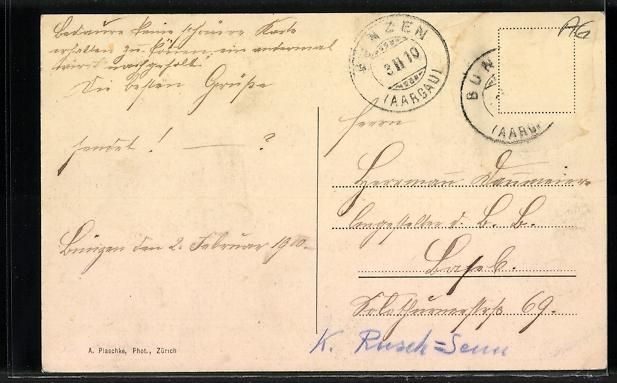 Bedaure keine schönere Karte
erhalten zu können, ein andermal
wird nachgeholt.
Die besten Grüße
sendet! — ?
Bünzen den 2. Februar 1910.
BÜNZEN
3.II.10
(AARGAU)
BÜN
(AARG
AG
Herrn
Herrmann Daumeier
Angestellter d. B. B.
Basel.
Solothurnerstrß 69.
K. Rusch=Senn
A. Plaschke, Phot., Zürich